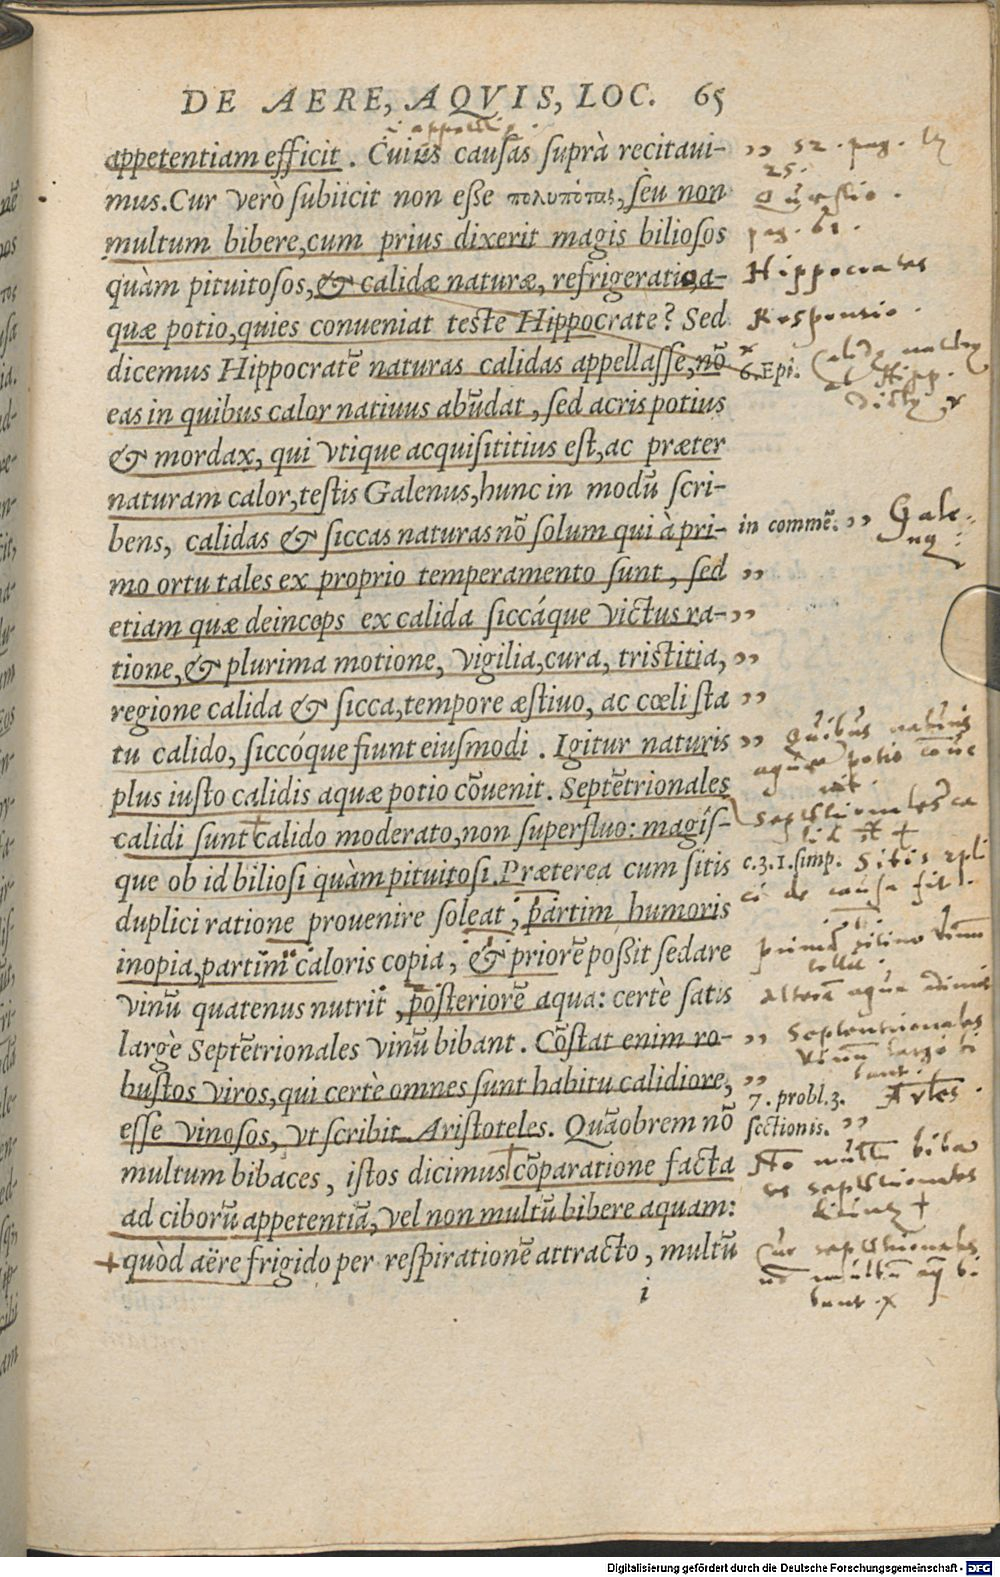 DE AERE, AQVIS, LOC. 65
appetentiam efficit. Cuius causas suprà recitaui-
mus. Cur verò subiicit non esse πολυπότας, seu non
multum bibere, cum prius dixerit magis biliosos
quàm pituitosos, & calidæ naturæ, refrigeratio, a-
quæ potio, quies conueniat teste Hippocrate? Sed
dicemus Hippocratē naturas calidas appellasse, nō
6. Epi.
eas in quibus calor natiuus abūdat, sed acris potius
& mordax, qui vtique acquisititius est, ac præter
naturam calor, testis Galenus, hunc in modū scri-
bens, calidas & siccas naturas nō solum qui à pri-
in commē.
mo ortu tales ex proprio temperamento sunt, sed
etiam quæ deinceps ex calida siccáque victus ra-
tione, & plurima motione, vigilia, cura, tristitia,
regione calida & sicca, tempore æstiuo, ac cœli sta
tu calido, siccóque fiunt eiusmodi. Igitur naturis
plus iusto calidis aquæ potio cōuenit. Septētrionales
calidi sunt calido moderato, non superfluo: magis-
que ob id biliosi quàm pituitosi. Præterea cum sitis
c. 3. 1. simp.
duplici ratione prouenire soleat, partim humoris
inopia, partim caloris copia, & priorē possit sedare
vinū quatenus nutrit, posteriorē aqua: certè satis
largè Septētrionales vinū bibant. Cōstat enim ro-
bustos viros, qui certè omnes sunt habitu calidiore,
7. probl. 3.
esse vinosos, vt scribit Aristoteles. Quāobrem nō
sectionis.
multum bibaces, istos dicimus cōparatione facta
ad ciborū appetentiā, vel non multū bibere aquam:
quòd aëre frigido per respirationē attracto, multū
i
52. pag.
25.
Quæstio.
pag. 61.
Hippocrates
Responsio.
Gale-
Quibus naturis
potio
Sitis
vinum
tollit.
Septentrionales
bant.
septentrionales
Cur septentrionales
bi
bant.
Digitalisierung gefördert durch die Deutsche Forschungsgemeinschaft - DFG